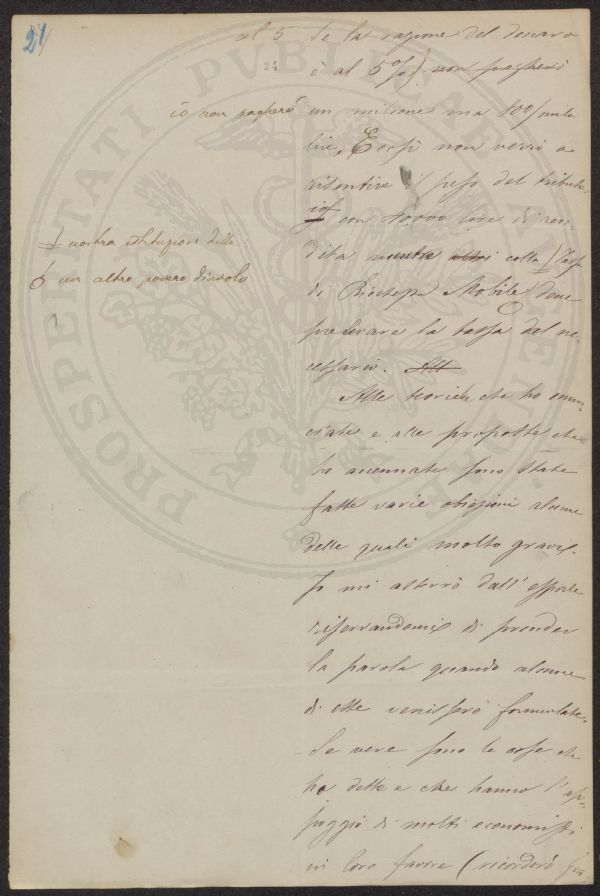 21
al 5 Se la ragione del denaro
è al 5%) non pagherò
io non pagherò un milione ma 800/mila
lire, E così non verrò a
risentire il peso del tributo
con 40,000 lire di ren-
dita mentre altri colla Tassa
di Ricchezza Mobile deve
prelevare la tassa dal ne-
cessario. All
nostra istituzione della
un altro povero diavolo
Alle teorie che ho enun-
ciate e alle proposte che
ho accennate sono state
fatte varie obiezioni alcune
delle quali molto gravi.
Io mi asterrò dall'esporle
riservandomi di prender
la parola quando alcune
di esse venissero formulate.
Se vere sono le cose che
ho dette e che hanno l'ap-
poggio di molti economisti
in loro favore (ricorderò fra
PROSPERITATI PUBLICAE